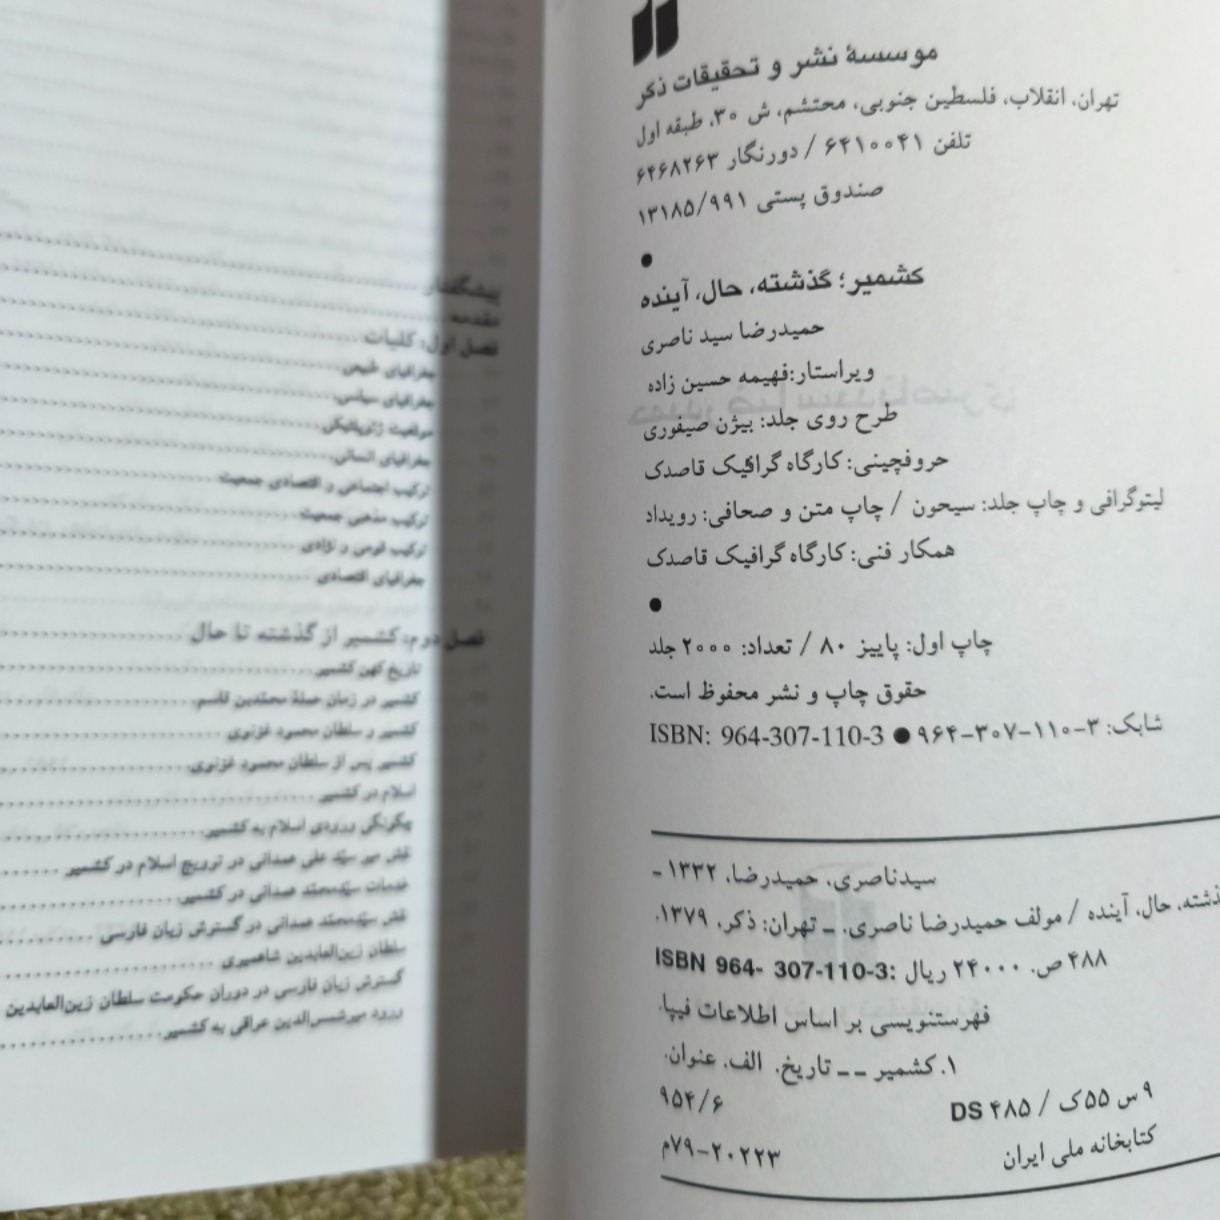 موسسهٔ نشر و تحقیقات ذکر
تهران، انقلاب، فلسطین جنوبی، محتشم، ش ۳۰، طبقه اول
تلفن ۶۴۱۰۰۴۱ / دورنگار ۶۴۶۸۲۶۳
صندوق پستی ۱۳۱۸۵/۹۹۱
کشمیر؛ گذشته، حال، آینده
حمیدرضا سید ناصری
ویراستار:فهیمه حسین زاده
طرح روی جلد: بیژن صیفوری
حروفچینی: کارگاه گرافیک قاصدک
لیتوگرافی و چاپ جلد: سیحون / چاپ متن و صحافی: رویداد
همکار فنی: کارگاه گرافیک قاصدک
چاپ اول: پاییز ۸۰ / تعداد: ۲۰۰۰ جلد
حقوق چاپ و نشر محفوظ است.
شابک: ۳-۱۱۰-۳۰۷-۹۶۴ ● ISBN: 964-307-110-3
سیدناصری، حمیدرضا، ۱۳۳۲ -
ذشته، حال، آینده / مولف حمیدرضا ناصری. ـ تهران: ذکر، ۱۳۷۹.
۴۸۸ ص. ۲۴۰۰۰ ریال :ISBN 964- 307-110-3
فهرستنویسی بر اساس اطلاعات فیپا.
۱. کشمیر -- تاریخ. الف. عنوان.
۹ س ۵۵ک / ۴۸۵ DS
۹۵۴/۶
کتابخانه ملی ایران
۷۹-۲۰۲۲۳م
پیشگفتار
مقدمه
فصل اول: کلیات
جغرافیای طبیعی
جغرافیای سیاسی
موقعیت ژئوپلتیکی
جغرافیای انسانی
ترکیب اجتماعی و اقتصادی جمعیت
ترکیب مذهبی جمعیت
ترکیب قومی و نژادی
جغرافیای اقتصادی
فصل دوم: کشمیر از گذشته تا حال
تاریخ کهن کشمیر
کشمیر در زمان حملهٔ محمدبن قاسم
کشمیر و سلطان محمود غزنوی
کشمیر پس از سلطان محمود غزنوی
اسلام در کشمیر
چگونگی ورودی اسلام به کشمیر
نقش میر سیّد علی همدانی در ترویج اسلام در کشمیر
خدمات سیّدمحمّد همدانی در کشمیر
نقش سیّدمحمّد همدانی در گسترش زبان فارسی
سلطان زین‌العابدین شاهمیری
گسترش زبان فارسی در دوران حکومت سلطان زین‌العابدین
ورود میرشمس‌الدین عراقی به کشمیر